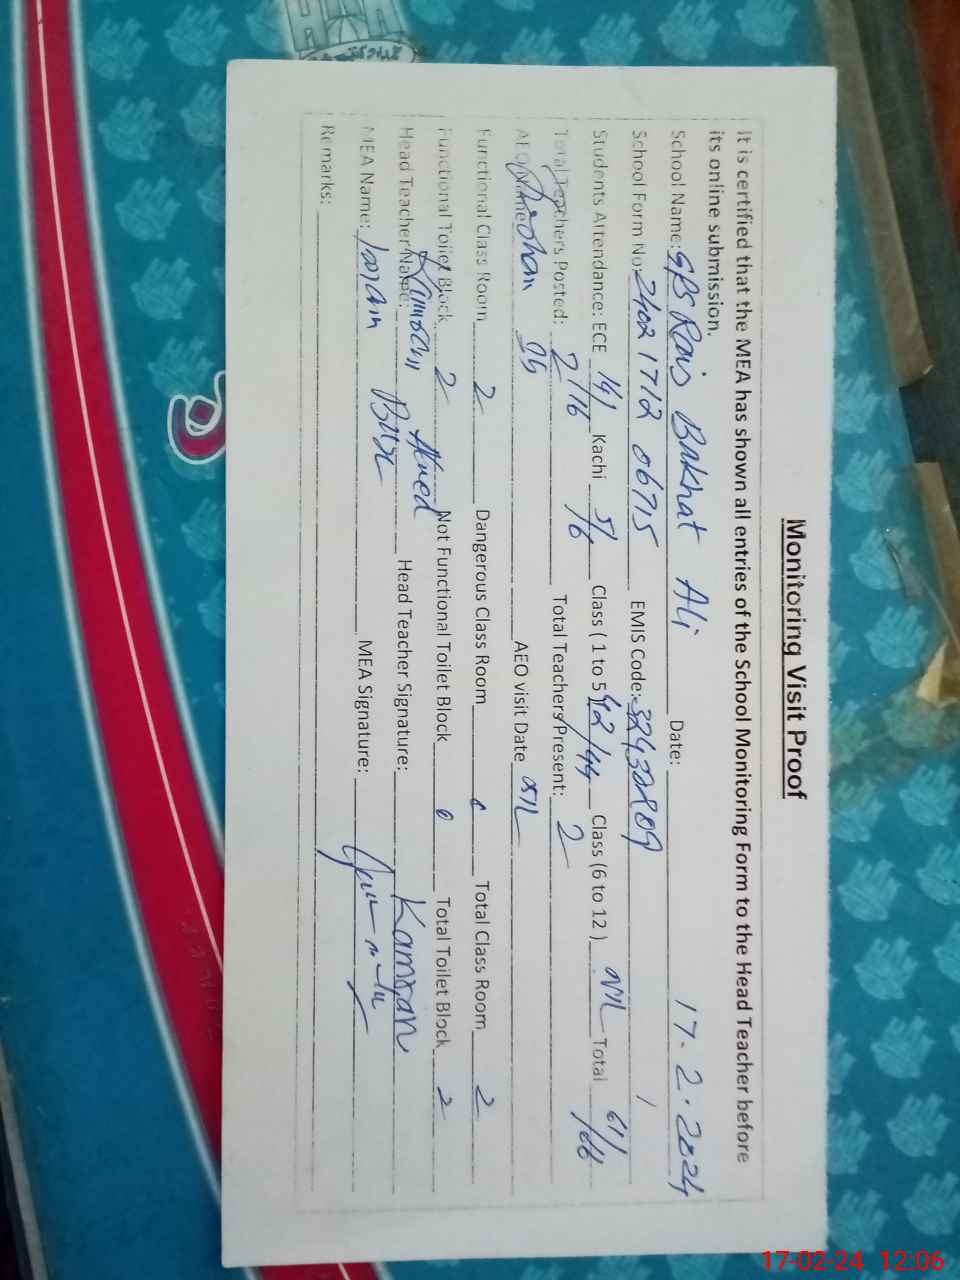 Monitoring Visit Proof
It is certified that the MEA has shown all entries of the School Monitoring Form to the Head Teacher before
its online submission.
School Name: GPS Rais Bakhat Ali Date: 17-2-2024
School Form No: 2402 1712 06715 EMIS Code:
Students Attendance: ECE 14/16 Kachi 5/6 Class ( 1 to 5 ) 42/44 Class (6 to 12 ) Total 61/66
Total Teachers Posted: 2 Total Teachers Present: 2
AEO Name AEO visit Date
Functional Class Room 2 Dangerous Class Room 0 Total Class Room 2
Functional Toilet Block 2 Not Functional Toilet Block 0 Total Toilet Block 2
Head Teacher Name: Kamran Head Teacher Signature: Kamran
MEA Name: MEA Signature:
Remarks:
17-02-24 12:06